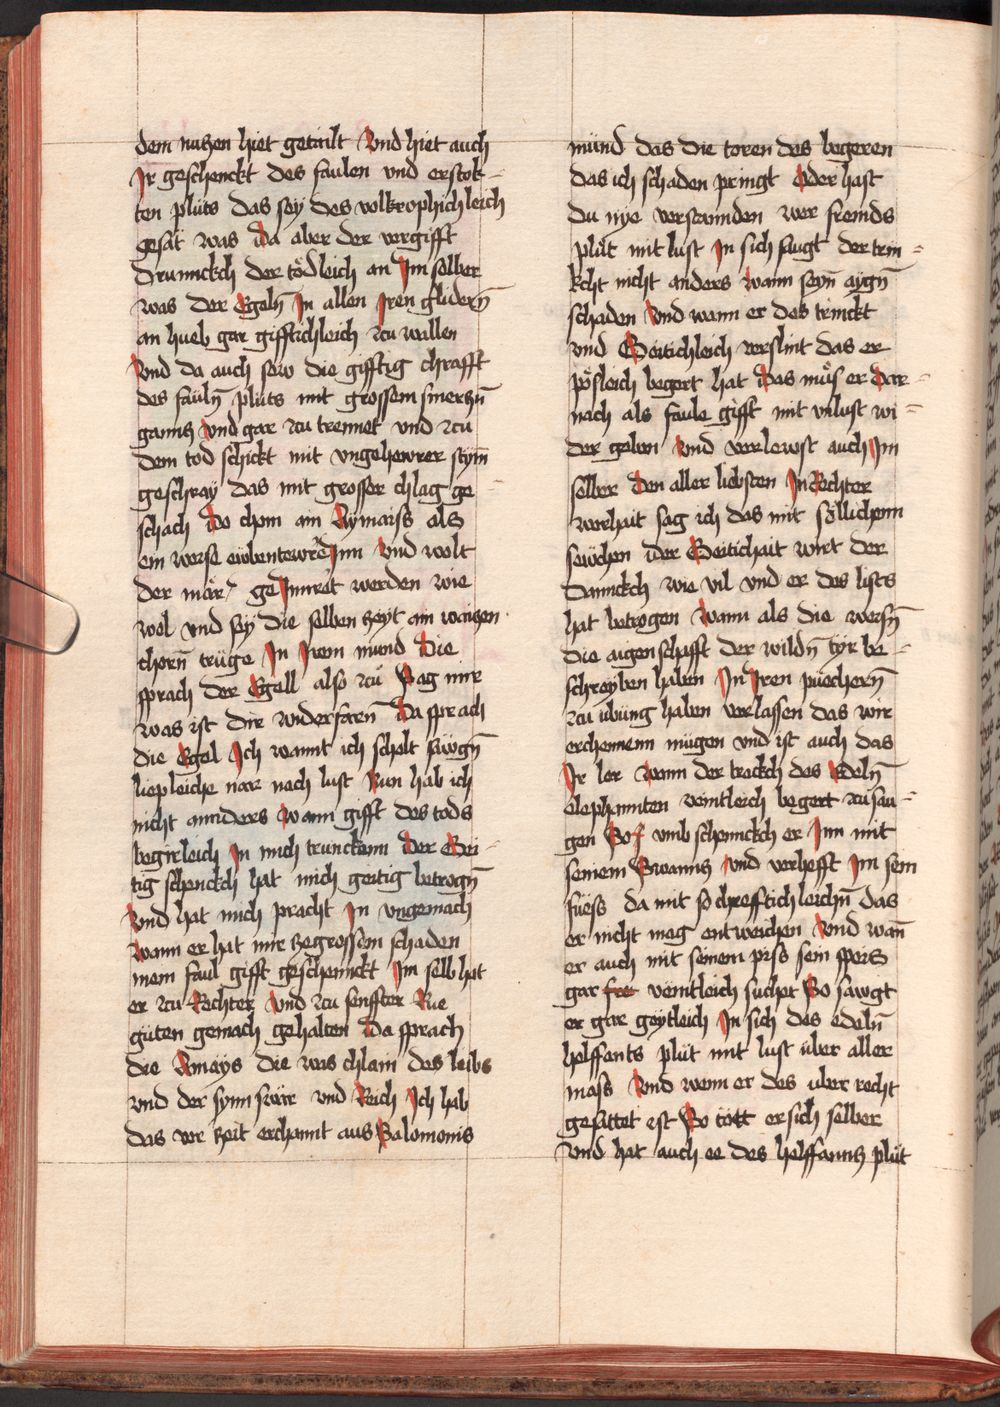 dem nutzen hiet getailt Vnd hiet auch
Ir geschenckt des faulen vnd erstok-
ten plüts das sey des volkrophichleich
gesät was Da aber der vergifft
Drunnckch der tödleich an Im selber
was der Egeln̄ In allen Iren glidern̄
an hueb gar gifftichleich zu wallen
Vnd da auch sew die gifftig chrafft
des fauln̄ plüts mit grossem smerczn̄
gannts Vnd gar zu trennet vnd zu
dem tod schickt mit vngehewrer stym̄
geschray das mit grosser chlag ge-
schach Do chom ain Aymaiss als
ein Inn Vnd wolt
der mär geInnret werden wie
wol vnd sey die selben zeyt ain waiczen
chorn̄ trüge In Irem mund Die
sprach der Egell also zu Sag mir
was ist dir widerfaren̄ Da sprach
die Egel Ich wannt ich scholt sawgn̄
liepleiche nar nach lust Nun hab ich
nicht annders Wann gifft des tods
begirleich In mich trunckenn Der Gei-
tig schenckch hat mich geitig betrogn̄
Vnd hat mich pracht In vngemach
Wann er hat mir ze grossem schaden
mein faul gifft geschennckt Im selb hat
er zu Rechter Vnd zu senffter Rue
güten gemach gehalten Da sprach
die Amays die was chlain des leibs
vnd der synn swär vnd Reich Ich hab
das vor zeit erchannt aus Salomonis
münd das die toren des begeren
das ich schaden pringt Oder hast
du nye verstannden wer fremds
plüt mit lust In sich saugt der trin-
kcht nicht anders Wann seyn̄ aygn̄
schaden Vnd wann er des trinckt
vnd Geitichleich verslint das er
pösleich begert hat Das müs er Dar-
nach als faule gifft mit vnlust wi-
der geben Vnd verlewst auch Im
selber Den aller liebsten In Rechter
worhait sag ich das mit söllichenn
sewchen der Geitichait wirt der
Dannckch wie vil vnd er des lists
hat betrogen Wann als die weysn̄
die aigenschafft der wildn̄ tyr be-
schreyben haben In Iren puechern̄
zu übüng haben verlassen das wir
erchennenn mügen vnd ist auch das
Ir ler Wann der trackch des Edeln̄
elephannten veintleich begert zu sau-
gen So vmb schennckch er Inn mit
seinem Swannts Vnd verhefft Im sein
füess da mit so chrefftichleichn̄ das
er nicht mag entweichen Vnd wan̄
er auch mit seinem piss sein speis
gar veintleich suchet So sawgt
er gar geytleich In sich des edeln̄
helffants plüt mit lust über aller
mass Vnd wenn er des uber recht
gesattet est So tött er sich selber
Vnd hat auch ee des helffannts plüt